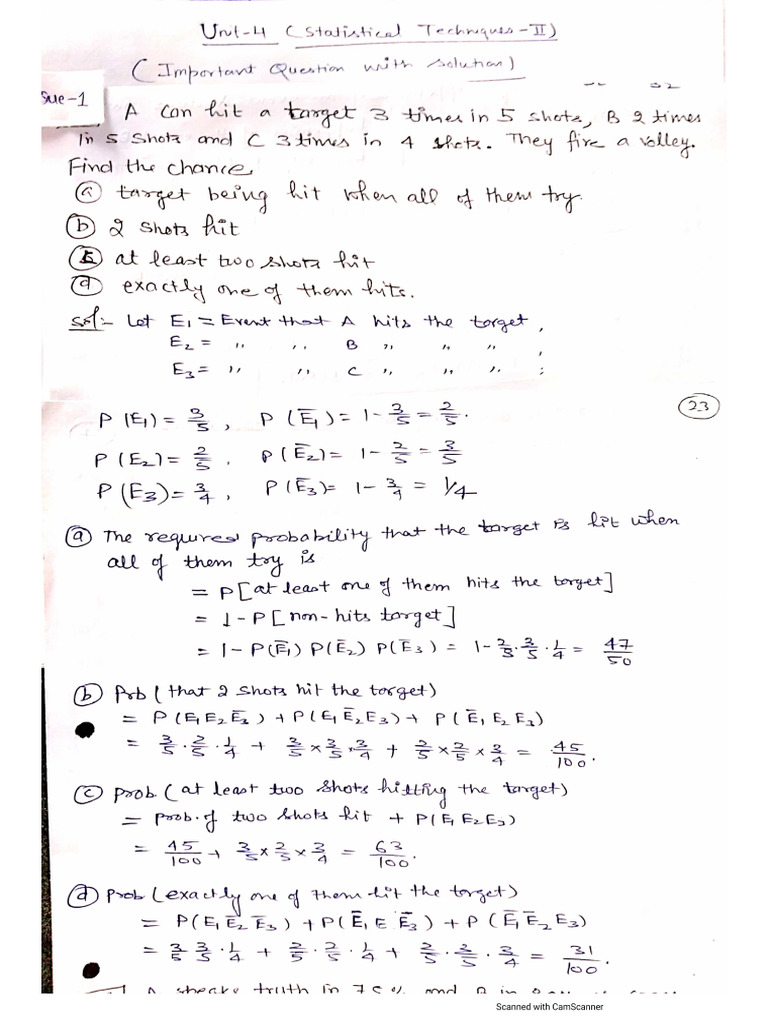 Unit-4 (Statistical Techniques-II)
(Important Question with solution)
Que-1
A can hit a target 3 times in 5 shots, B 2 times
in 5 shots and C 3 times in 4 shots. They fire a volley.
Find the chance
(a) target being hit when all of them try.
(b) 2 shots hit
(c) at least two shots hit
(d) exactly one of them hits.
Sol:- Let E₁ = Event that A hits the target,
E₂ = ,, ,, B ,, ,, ,, ,
E₃ = ,, ,, C ,, ,, ,, ;
23
P(E₁) = 3/5, P(Ē₁) = 1 - 3/5 = 2/5.
P(E₂) = 2/5, P(Ē₂) = 1 - 2/5 = 3/5
P(E₃) = 3/4, P(Ē₃) = 1 - 3/4 = 1/4
(a) The required probability that the target is hit when
all of them try is
= P[at least one of them hits the target]
= 1 - P[non-hits target]
= 1 - P(Ē₁) P(Ē₂) P(Ē₃) = 1 - 2/5 · 3/5 · 1/4 = 47/50
(b) Prob (that 2 shots hit the target)
= P(E₁ E₂ Ē₃) + P(E₁ Ē₂ E₃) + P(Ē₁ E₂ E₃)
= 3/5 · 2/5 · 1/4 + 3/5 × 3/5 × 3/4 + 2/5 × 2/5 × 3/4 = 45/100.
(c) prob. (at least two shots hitting the target)
= prob. of two shots hit + P(E₁ E₂ E₃)
= 45/100 + 3/5 × 2/5 × 3/4 = 63/100.
(d) prob (exactly one of them hit the target)
= P(E₁ Ē₂ Ē₃) + P(Ē₁ E Ē₃) + P(Ē₁ Ē₂ E₃)
= 3/5 3/5 · 1/4 + 2/5 · 2/5 · 1/4 + 2/5 · 3/5 · 3/4 = 31/100.
A speaks truth in 75% and B in
Scanned with CamScanner